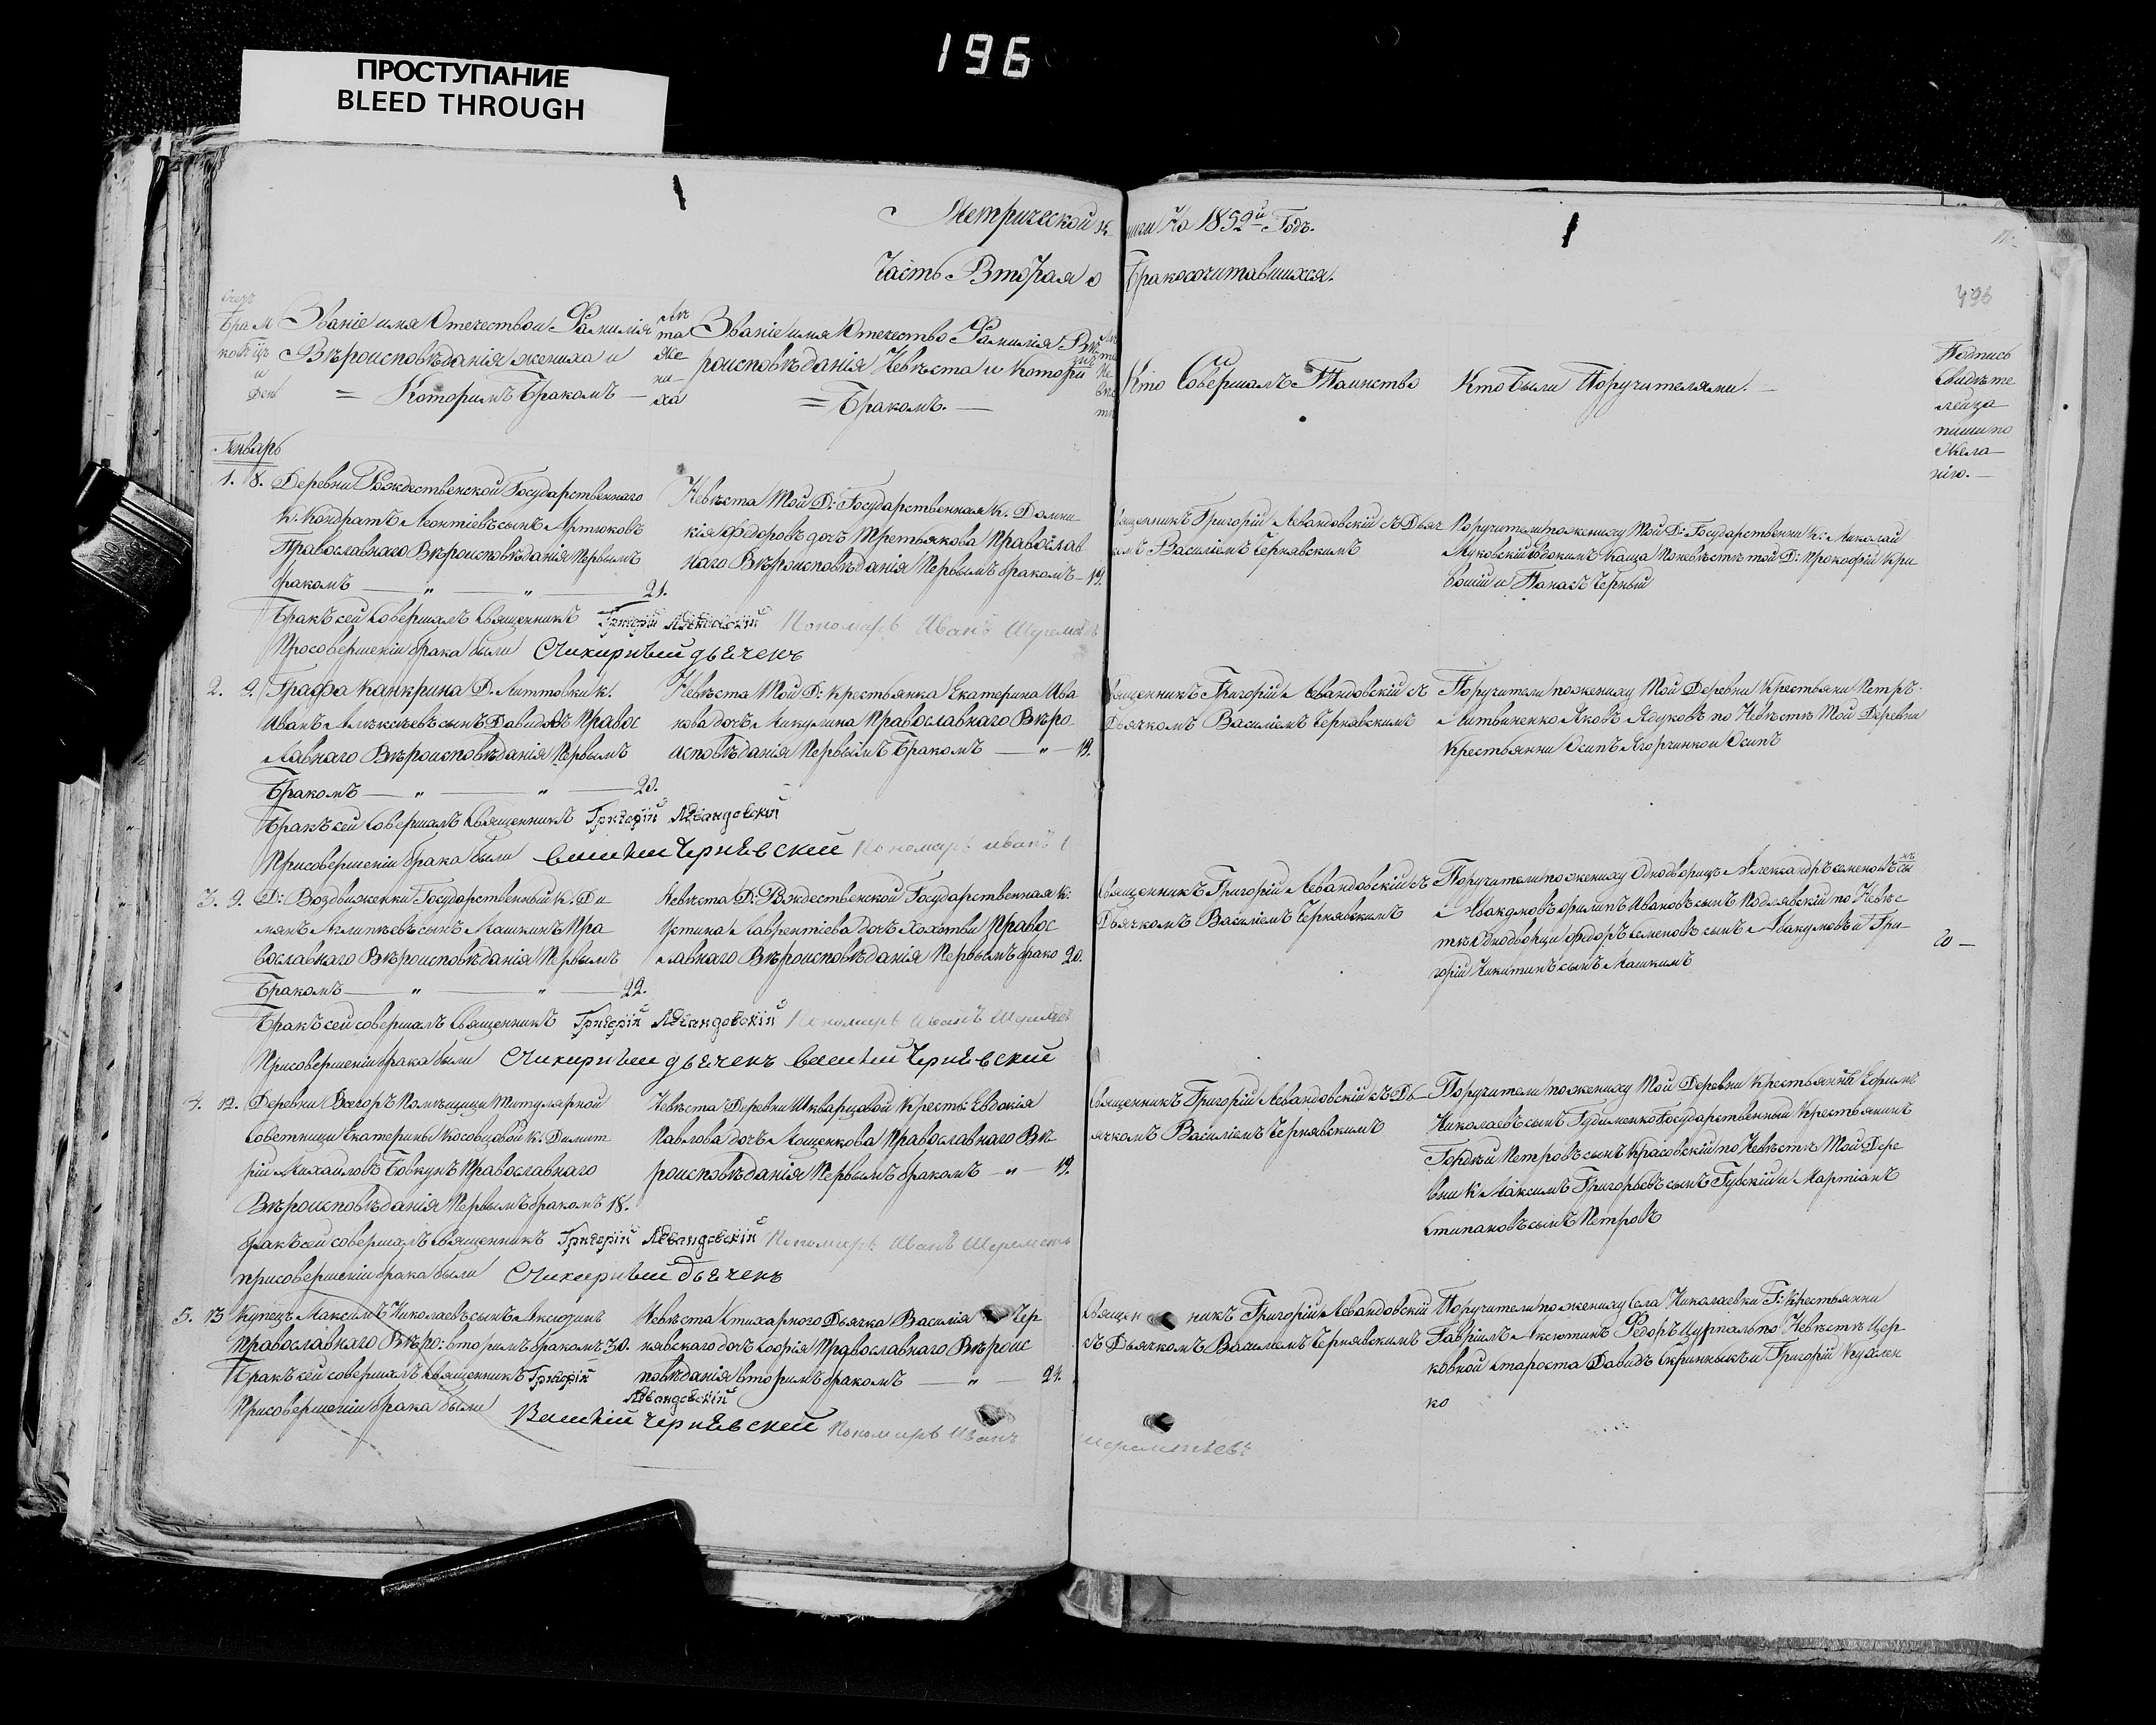 196
ПРОСТУПАНИЕ
BLEED THROUGH
Метрической книги На 1852й Годъ.
Часть Вторая о Бракосочитавшихся.
493
Счетъ Браковъ
Мцъ и День
Званіе имя Отечество и Фамилія
Вѣроисповѣданія жениха и
= Которимъ Бракомъ —
Лѣта Жениха
Званіе имя Отечество Фамилія Вѣ
роисповѣданія Невѣста и Которимъ
= Бракомъ. —
Лѣта Невѣсти
Кто Совершалъ Таинство
Кто были Поручителями. —
Подпись
свидѣте
лей за
писи по
Жела
нію. —
Январь
1. 8. Деревни Рождественской Государственнаго
К. Кондратъ Леонтіевъ сынъ Артюковъ
Православнаго Вѣроисповѣданія Первымъ
бракомъ — „ — „ — 21.
Невѣста Той Д: Государственная К. Домни
кія Федоровъ дочъ Третьякова Православ
наго Вѣроисповѣданія Первымъ бракомъ — 19.
Священникъ Григорій Левандовскій съ Дьяч
комъ Василіемъ Чернявскимъ
Поручители по жениху Той Д: Государственни К: Николай
Муковскій Евдокимъ Каща По невѣстѣ той Д: Прокофій Кри
вошій и Панасъ Черный
Бракъ сей Совершалъ Священникъ Григорій Левандовскій Пономарь Иванъ
При совершеніи брака были Стихарный дьяченъ
2. 9. Графа Канкрина Д. Литтовки К.
Иванъ Алѣксѣевъ сынъ Давидовъ Правос
лавнаго Вѣроисповѣданія Первымъ
Бракомъ — „ — „ — 20.
Невѣста Той Д: Крестьянка Екатерина Ива
кова дочъ Микулина Православнаго Вѣро
исповѣданія Первымъ Бракомъ — „ — 19.
Священникъ Григорій Левандовскій съ
Дьячкомъ Василіемъ Чернявскимъ
Поручители по жениху Той Деревни Крестьяни Петръ
Литвиненко Яковъ Ядуковъ по Невѣстѣ Той Деревни
Крестьянни Осипъ Ягорчинко и Осипъ
Бракъ сей Совершалъ Священникъ Григорій Левандовскій
При совершеніи брака были Василій Чернявский Пономарь Иванъ
3. 9. Д: Воздвиженки Государственный К. Ди
мянъ Аглипѣевъ сынъ Машкинъ Пра
вославнаго Вѣроисповѣданія Первымъ
Бракомъ — „ — „ — 22.
Невѣста Д: Рождественской Государственная К:
Устина Лаврентіева дочъ Хохотви Правос
лавнаго Вѣроисповѣданія Первымъ брако 20.
Священникъ Григорій Левандовскій съ
Дьячкомъ Василіемъ Чернявскимъ
Поручители по жениху Однодворцъ Александръ семеновъ сынъ
Авакумовъ Филипъ Ивановъ сынъ Подлявскій по Невѣс
тѣ Однодворци Федоръ Семеновъ сынъ Абакумовъ и Гри
горій Никитинъ сынъ Машкимъ
20 —
Бракъ сей совершалъ Священникъ Григорій Левандовскій Пономарь Иванъ
При совершеніи брака были Стихарный дьяченъ Василій Чернявский
4. 12. Деревни Всегоръ Помѣщици Титулярной
Советници Екатерины Косовцовой К. Димит
рій Михаиловъ Бовкунъ Православнаго
Вѣроисповѣданія Первымъ бракомъ 18.
Невѣста Деревни Шкварцовой Кресть: Евдокія
Павлова дочъ Мощенкова Православнаго Вѣ
роисповѣданія Первымъ бракомъ — „ — 19.
Священникъ Григорій Левандовскій съ Дь
ячкомъ Василіемъ Чернявскимъ
Поручители по жениху Той Деревни Крестьянинъ Ефимъ
Николаевъ сынъ Гудименко Государственный Крестьянинъ
Гордѣй Петровъ сынъ Красовскій по Невѣстѣ Той Дере
вни К: Максимъ Григорьевъ сынъ Губскій и Мартіанъ
Стипановъ сынъ Петровъ
Бракъ сей совершалъ Священникъ Григорій Левандовскій Пономарь Иванъ
При совершеніи брака были Стихарный дьяченъ
5. 13 Купецъ Максимъ Николаевъ сынъ Аксютинъ
Православнаго Вѣро: вторимъ бракомъ 30.
Невѣста Стихарного Дьячка Василія Чер
нявскаго дочъ Софія Православнаго Вѣроис
повѣданія вторимъ бракомъ — „ — 24.
Священникъ Григорій Левандовскій
съ Дьячкомъ Василіемъ Чернявскимъ
Поручители по жениху Села Николаевки Г: Крестьянни
Гавріилъ Аксютинъ Федоръ Цурпаль по Невѣстѣ Цер
ковной Староста Давидъ Скринныкъ и Григорій Кухлен
ко
Бракъ сей совершалъ Священникъ Григорій Левандовскій
При совершеніи брака были Василій Чернявский Пономарь Иванъ Шереметьевъ